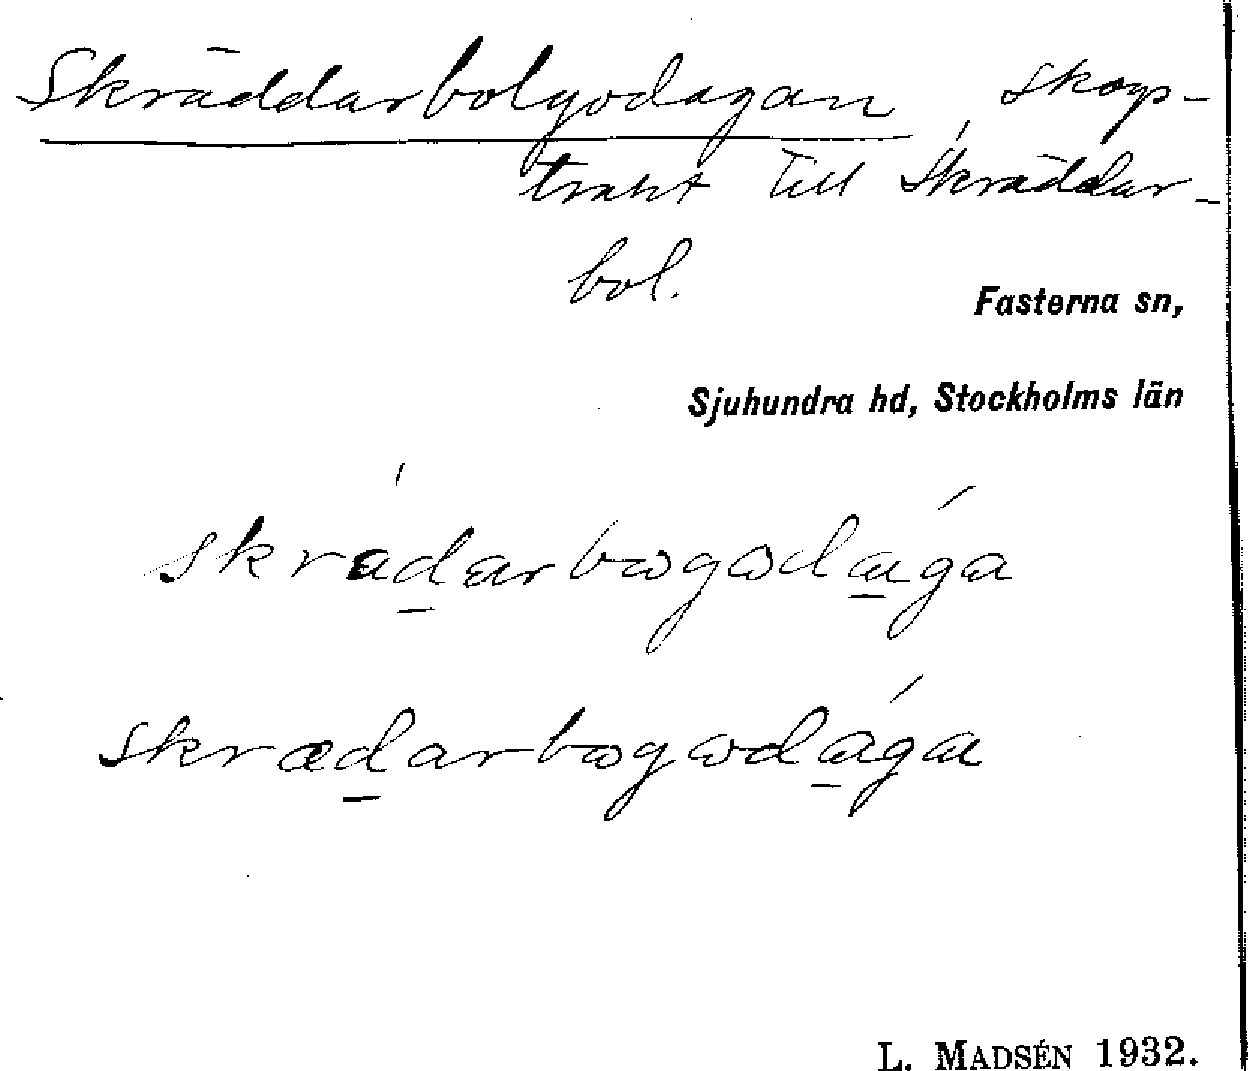 Skräddarbolgodagan, skogs-
trakt till Skräddar-
bol.
Fasterna sn,
Sjuhundra hd, Stockholms län
skrädarbogodága
skrædarbogodága
L. MADSÉN 1932.